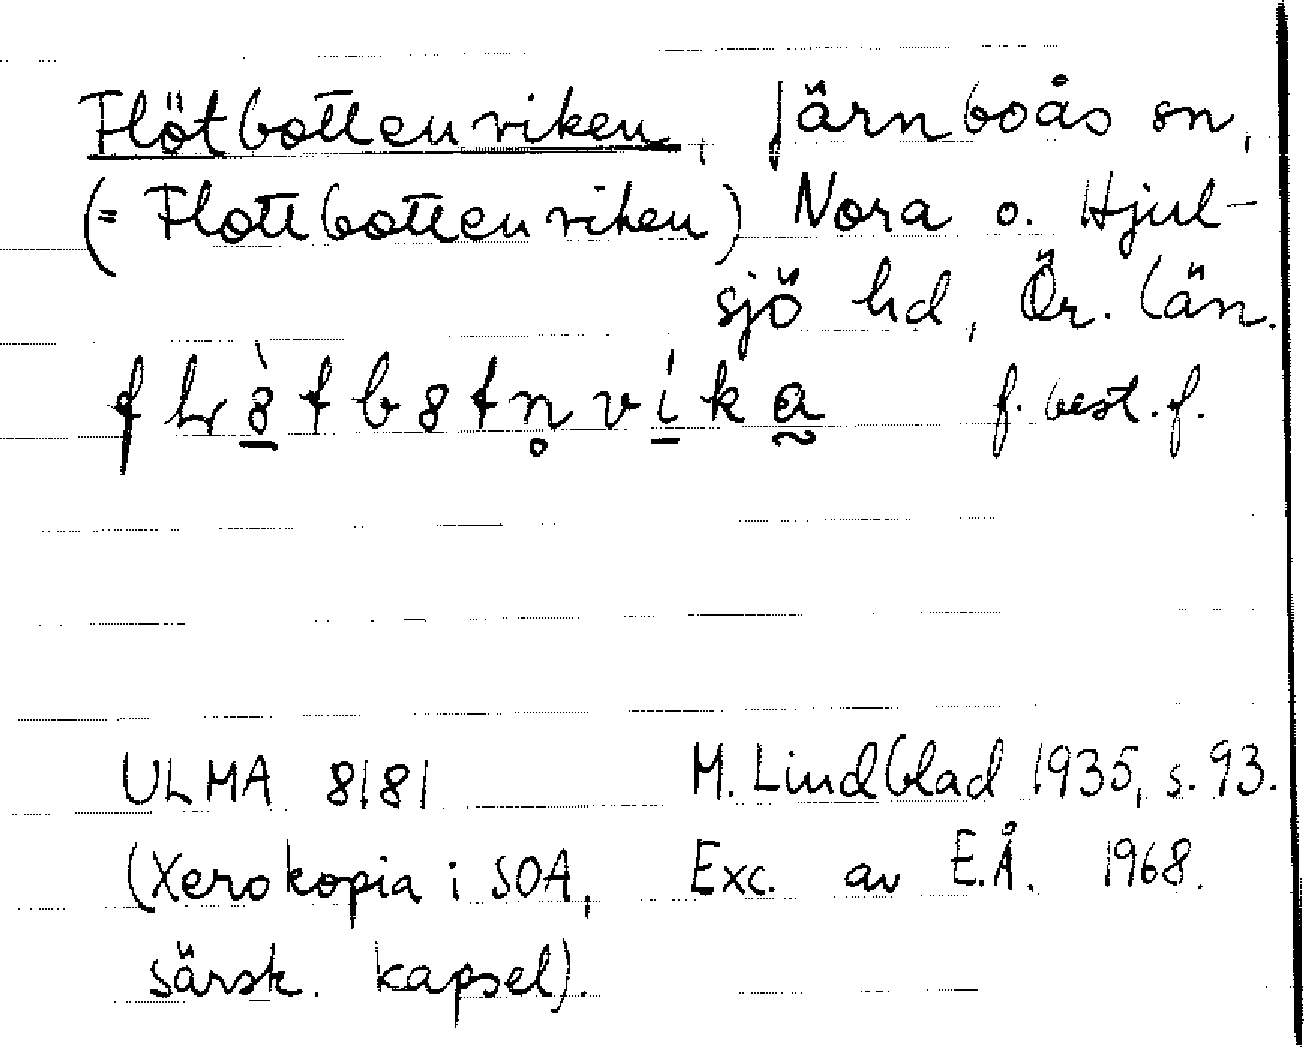 Flötbottenviken, Järnboås sn,
(= Flottbottenviken) Nora o. Hjul-
sjö hd, Ör. län.
f. best. f.
ULMA 8181 M. Lindblad 1935, s. 93.
(Xerokopia i SOA, Exc. av E.Å. 1968.
särsk. kapsel).